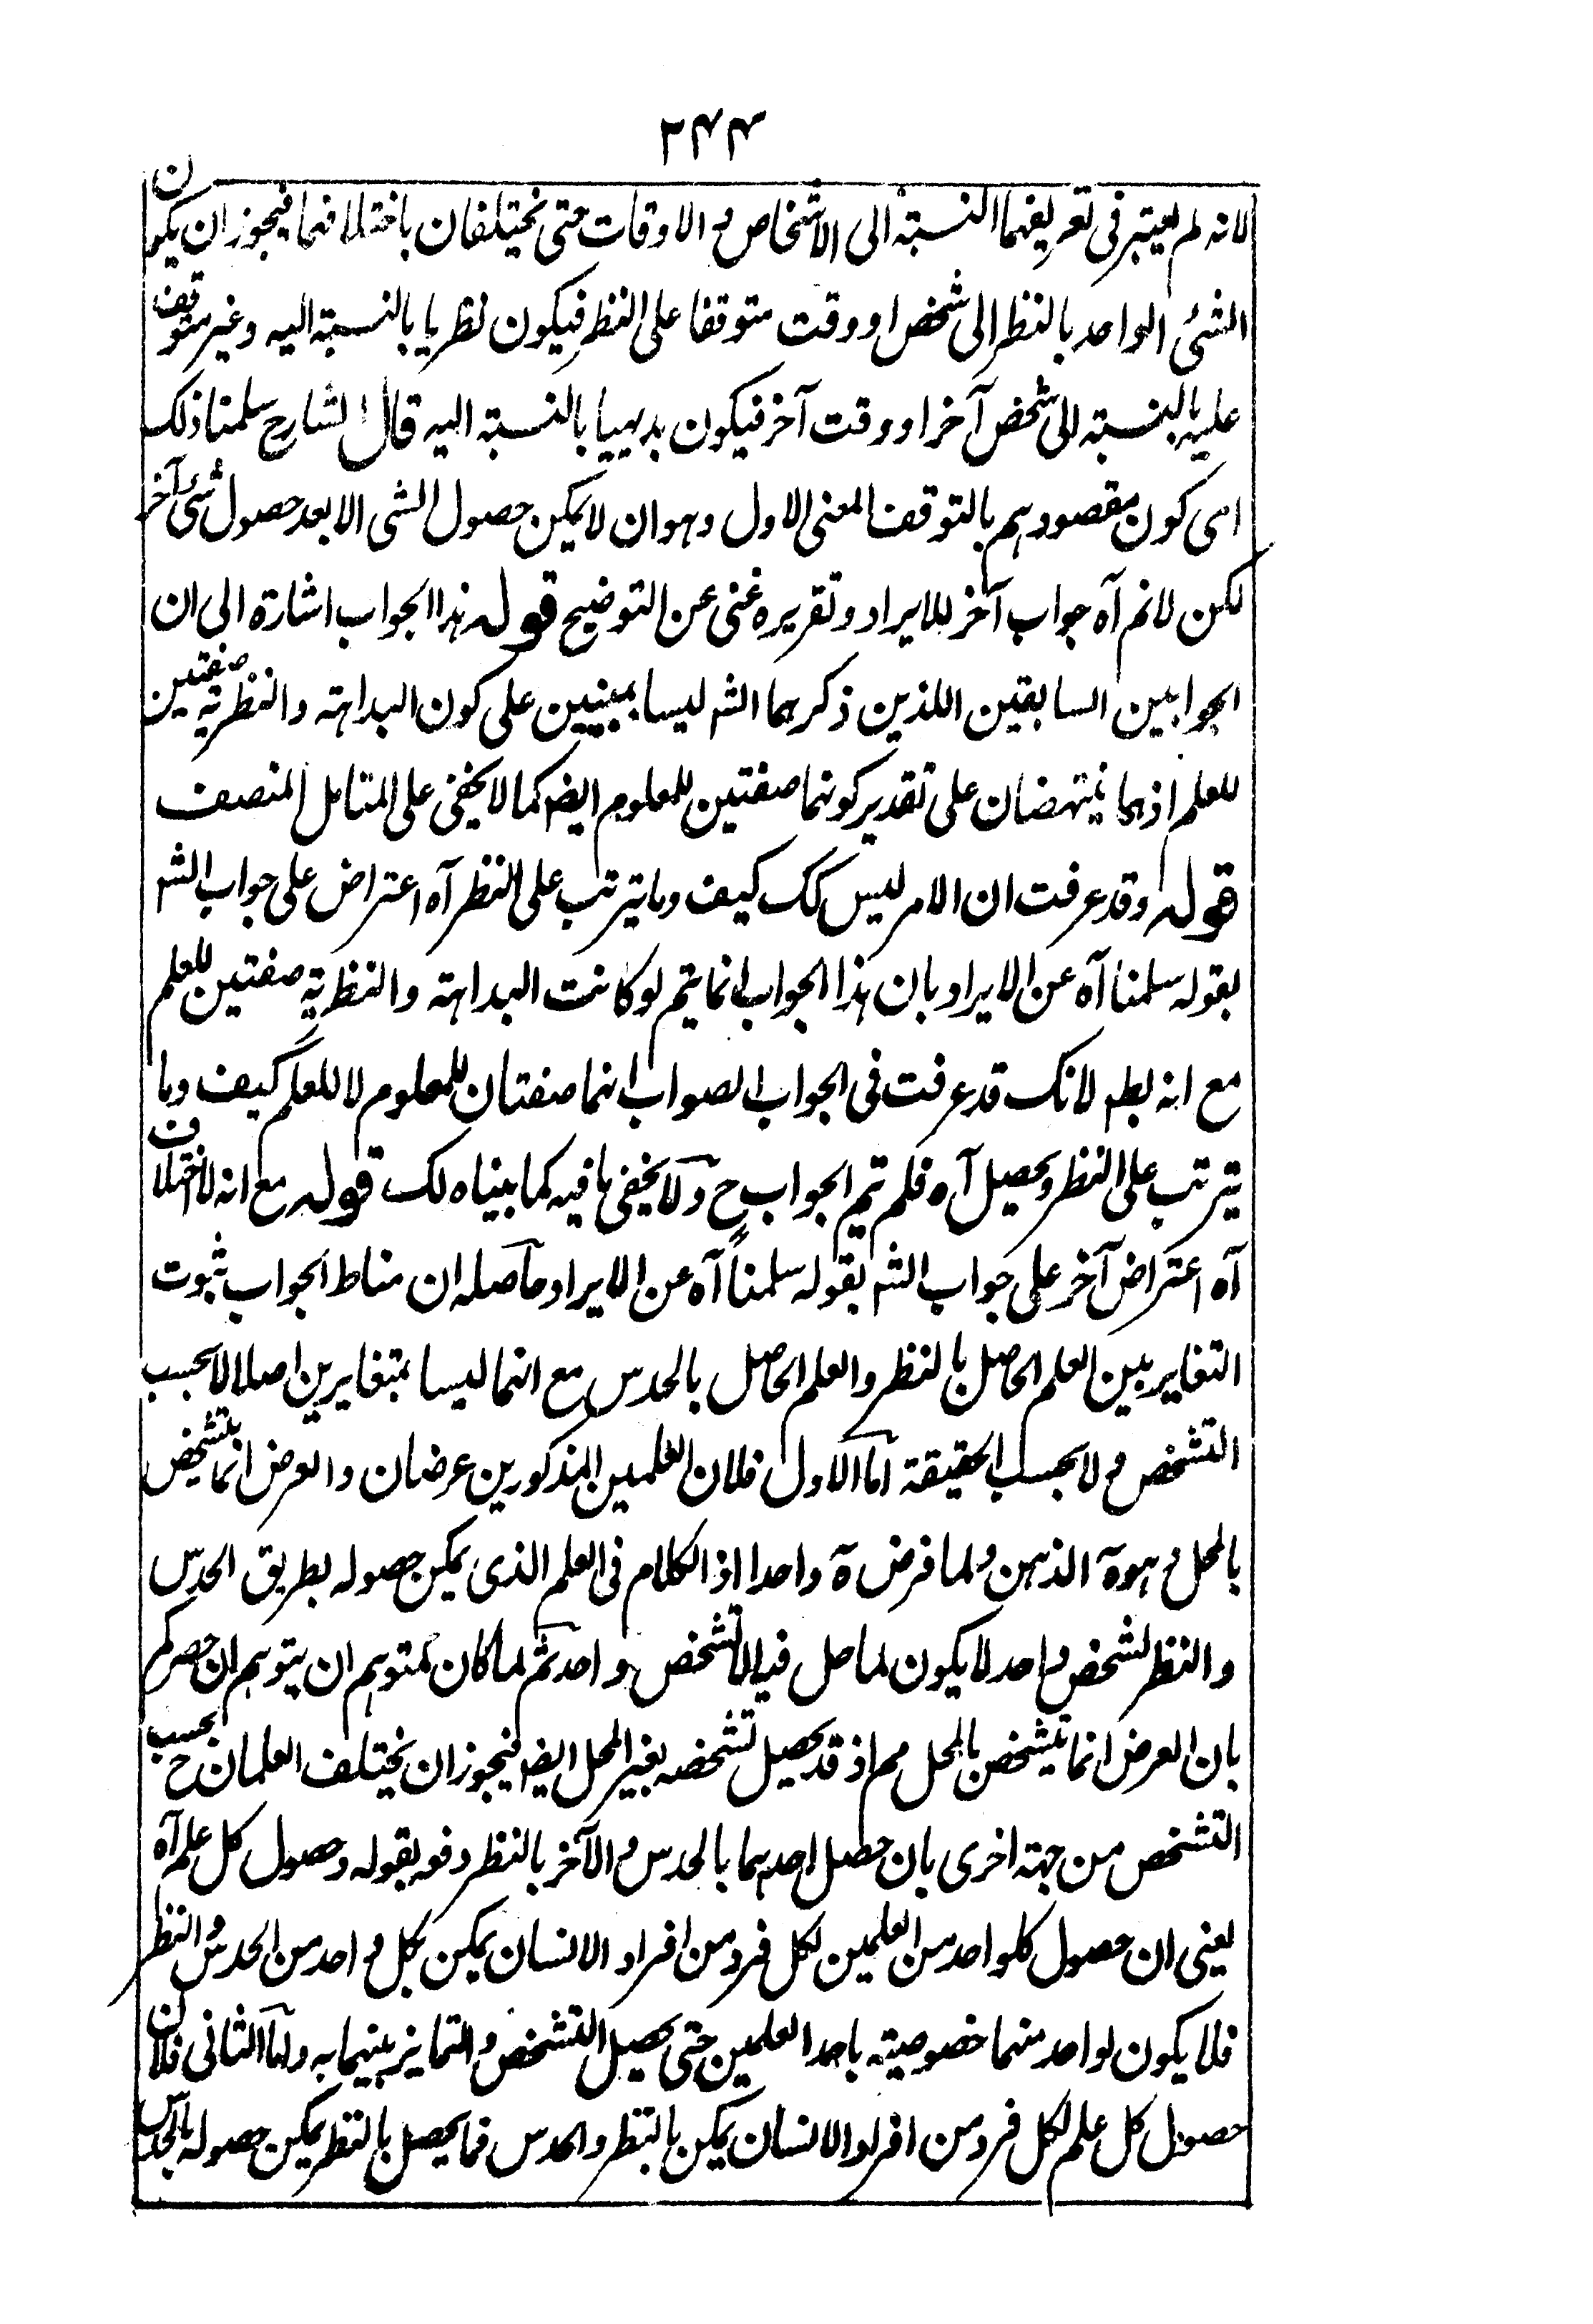 ٢٤٤
لانه لم يعتبر فى تعريفهما النسبة الى الاشخاص و الاوقات حتى يختلفان باختلافهما فيجوز ان يكون
الشئ الواحد بالنظر الى شخص او وقت متوقفا على النظر فيكون نظريا بالنسبة اليه وغير متوقف
عليه بالنسبة الى شخص آخر او وقت آخر فيكون بديهيا بالنسبة اليه قال الشارح سلمنا ذلك
اى كون مقصودهم بالتوقف المعنى الاول وهو ان لا يمكن حصول الشى الا بعد حصول شئ آخر
لكن لانم آه جواب آخر للايراد وتقريره غنى عن التوضيح قوله هذا الجواب اشارة الى ان
الجوابين السابقين اللذين ذكرهما الشه ليسا بمبنيين على كون البداهة والنظرية صفتين
للعلم اذهما ينتهضان على تقدير كونهما صفتين للمعلوم ايضه كما لا يخفى على المتامل المنصف
قوله وقد عرفت ان الامر ليس كك كيف وما يترتب على النظر آه اعتراض على جواب الشه
بقوله سلمنا آه عن الايراد بان هذا الجواب انما يتم لو كانت البداهة والنظرية صفتين للعلم
مع انه بطه لانك قد عرفت فى الجواب الصواب انهما صفتان للمعلوم لا للعلم كيف وما
يترتب على النظر ويحصيل آه فلم يتم الجواب ح ولا يخفى ما فيه كما بيناه لك قوله مع انه لا اختلاف
آه اعتراض آخر على جواب الشه بقوله سلمنا آه عن الايراد حاصله ان مناط الجواب ثبوت
التغاير بين العلم الحاصل بالنظر والعلم الحاصل بالحدس مع انهما ليسا بمتغايرين اصلا لا بحسب
التشخص و لا بحسب الحقيقة اما الاول فلان العلمين المذكورين عرضان والعرض انما يتشخص
بالمحل و هو ة الذهن و لما فرض ة واحدا اذ الكلام فى العلم الذى يمكن حصوله بطريق الحدس
والنظر لشخص واحد لا يكون لما حل فيه الا تشخص واحد ثم لما كان لمتوهم ان يتوهم ان حصركم
بان العرض انما يتشخص بالمحل مم اذ قد يحصيل تشخصه بغير المحل ايضه فيجوز ان يختلف العلمان ح بحسب
التشخص من جهة اخرى بان حصل احدهما بالحدس و الآخر بالنظر دفعه بقوله وحصول كل علم آه
يعنى ان حصول كلواحد من العلمين لكل فرد من افراد الانسان يمكن بكل واحد من الحدس و النظر
فلا يكون لواحد منهما خصوصية باحد العلمين حتى يحصيل التشخص والتمايز بينهما به واما الثانى فلان
حصول كل علم لكل فرد من افراد الانسان يمكن بالنظر والحدس فما يحصيل بالنظر يمكن حصوله بالحدس